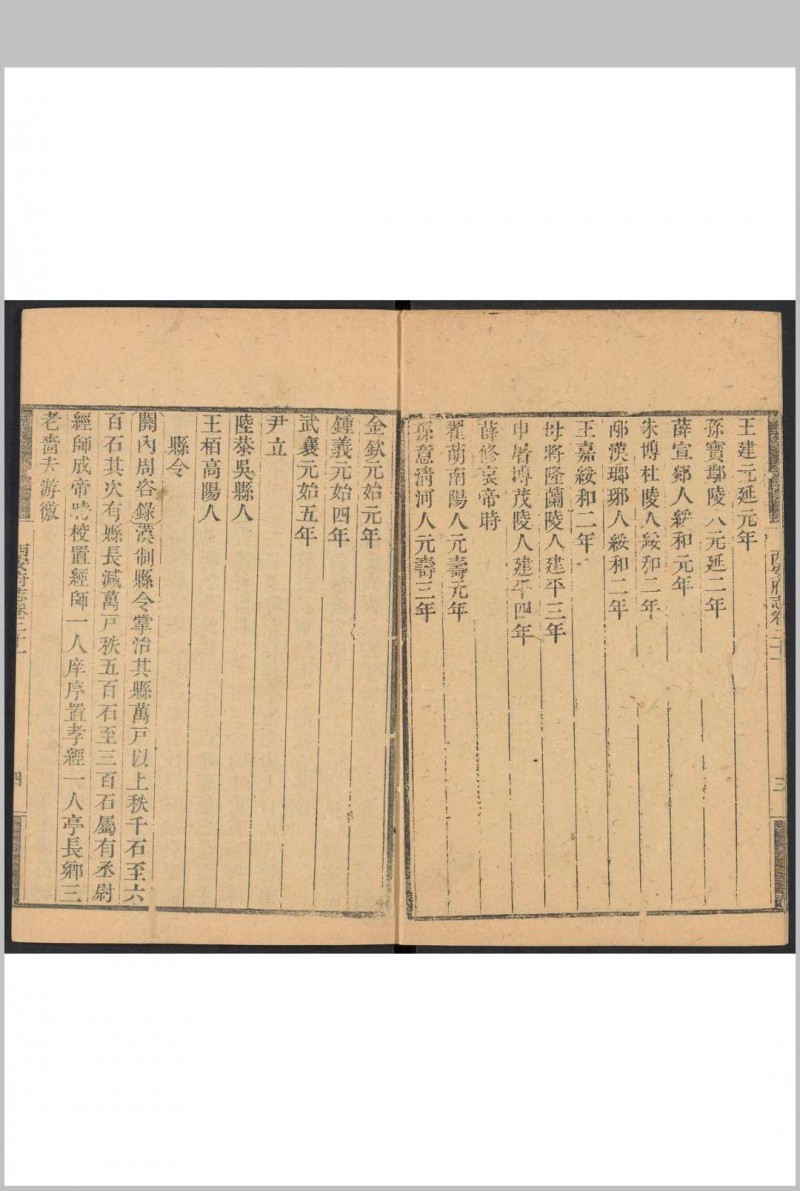 西安府志卷二十一
三
王建元延元年
孫寶鄢陵人元延二年
薛宣郯人綏和元年
朱博杜陵人綏和二年
邴漢瑯琊人綏和二年
王嘉綏和二年
毋將隆蘭陵人建平三年
申屠博茂陵人建平四年
薛修哀帝時
翟萌南陽人元壽元年
孫意清河人元壽三年
金欽元始元年
鍾義元始四年
武襄元始五年
尹立
陸恭吳縣人
王栢高陽人
縣令
關內周咨錄漢制縣令掌治其縣萬戸以上秩千石至六
百石其次有縣長減萬戸秩五百石至三百石屬有丞尉
經師成帝時校置經師一人庠序置孝經一人亭長鄉三
老嗇夫游徼
西安府志卷二十一
四